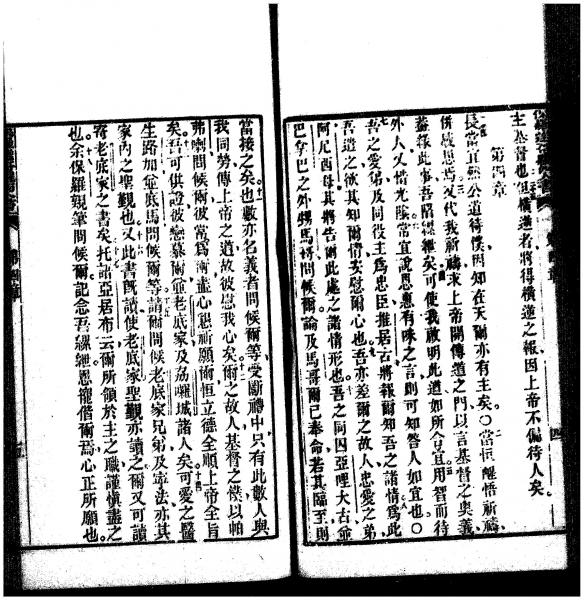 主基督也但橫逆者將得橫逆之報因上帝不偏待人矣
第四章
長當宜公道待僕因知在天爾亦有主矣○當恒醒悟祈禱
併感恩焉又代我祈禱求上帝開傳道之門以言基督之奧義
蓋緣此事吾陷縲絏矣可使我啟明此道如所合宜且用智而待
外人又惜光陰常宜說恩惠有味之言則可知答人如宜也○
吾之愛弟及同役主爲忠臣推居古將報爾知吾之諸情爲此
吾遣之欲其知爾情安慰爾心也吾亦差爾之故人忠愛之弟
阿尼西母其將告爾此處之諸情形也吾之同囚亞哩大古爺
巴拿巴之外甥馬問候爾論及馬哥爾已奉命若其臨至則
當接之矣也數亦名義者問候爾等受斷禮中只有此數人與
我同勞傳上帝之道故彼慰我心矣爾之故人基督之僕以帕
弗喇問候爾彼常爲爾盡心懇祈願爾恒立德全順上帝全旨
矣吾可供證彼戀慕爾並老底家及荔喇城諸人矣可愛之醫
生路加並底馬問候爾等請爾問候老底家兄弟及寧法亦其
家內之聖觀也又此書既讀使老底家聖觀亦讀之爾又可讀
寄老底家之書矣托諾亞居布云爾所領於主之職謹愼盡之
也余保羅親筆問候爾記念吾縲絏恩寵偕爾焉心正所願也